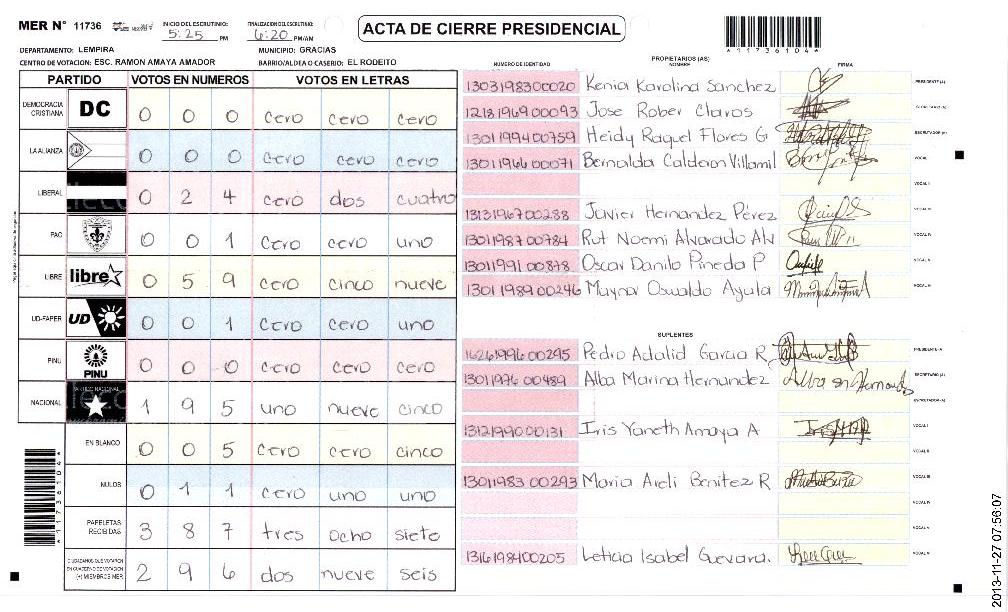 MER N° 11736
INICIO DEL ESCRUTINIO: 5:25 PM
FINALIZACION DEL ESCRUTINIO: 6:20 PM/AM
ACTA DE CIERRE PRESIDENCIAL
117361041
DEPARTAMENTO: LEMPIRA
MUNICIPIO: GRACIAS
CENTRO DE VOTACION: ESC. RAMON AMAYA AMADOR
BARRIO/ALDEA O CASERIO: EL RODEITO
PARTIDO VOTOS EN NUMEROS VOTOS EN LETRAS
DEMOCRACIA CRISTIANA DC 0 0 0 cero cero cero
LA ALIANZA 0 0 0 cero cero cero
LIBERAL 0 2 4 cero dos cuatro
PAC 0 0 1 cero cero uno
LIBRE libre 0 5 9 cero cinco nueve
UD-FAPER UD 0 0 1 cero cero uno
PINU PINU 0 0 0 cero cero cero
NACIONAL 1 9 5 uno nueve cinco
EN BLANCO 0 0 5 cero cero cinco
NULOS 0 1 1 cero uno uno
PAPELETAS RECIBIDAS 3 8 7 tres ocho siete
CIUDADANOS QUE VOTARON EN CUADERNO DE VOTACION (+) MIEMBROS MER 2 9 6 dos nueve seis
PROPIETARIOS (AS)
NUMERO DE IDENTIDAD NOMBRE FIRMA
1303198300020 Kenia Karolina Sanchez PRESIDENTE (A)
1213196900093 Jose Rober Claros SECRETARIO (A)
1301199400759 Heidy Raquel Flores G ESCRUTADOR (A)
1301196600071 Bernalda Calderon Villamil VOCAL I
VOCAL II
1313196700288 Javier Hernandez Pérez VOCAL III
1301198700784 Rut Noemi Alvarado Alv VOCAL IV
1301199100878 Oscar Danilo Pineda P VOCAL V
1301198900246 Maynor Oswaldo Ayala VOCAL VI
SUPLENTES
1626199600295 Pedro Adalid Garcia R PRESIDENTE (A)
1301197600489 Alba Marina Hernandez SECRETARIO (A)
ESCRUTADOR (A)
1312199000131 Iris Yaneth Amaya A VOCAL I
VOCAL II
1301198300293 Maria Areli Benitez R VOCAL III
VOCAL IV
VOCAL V
1316198400205 Leticia Isabel Guevara. VOCAL VI
117361041
2013-11-27 07:56:07